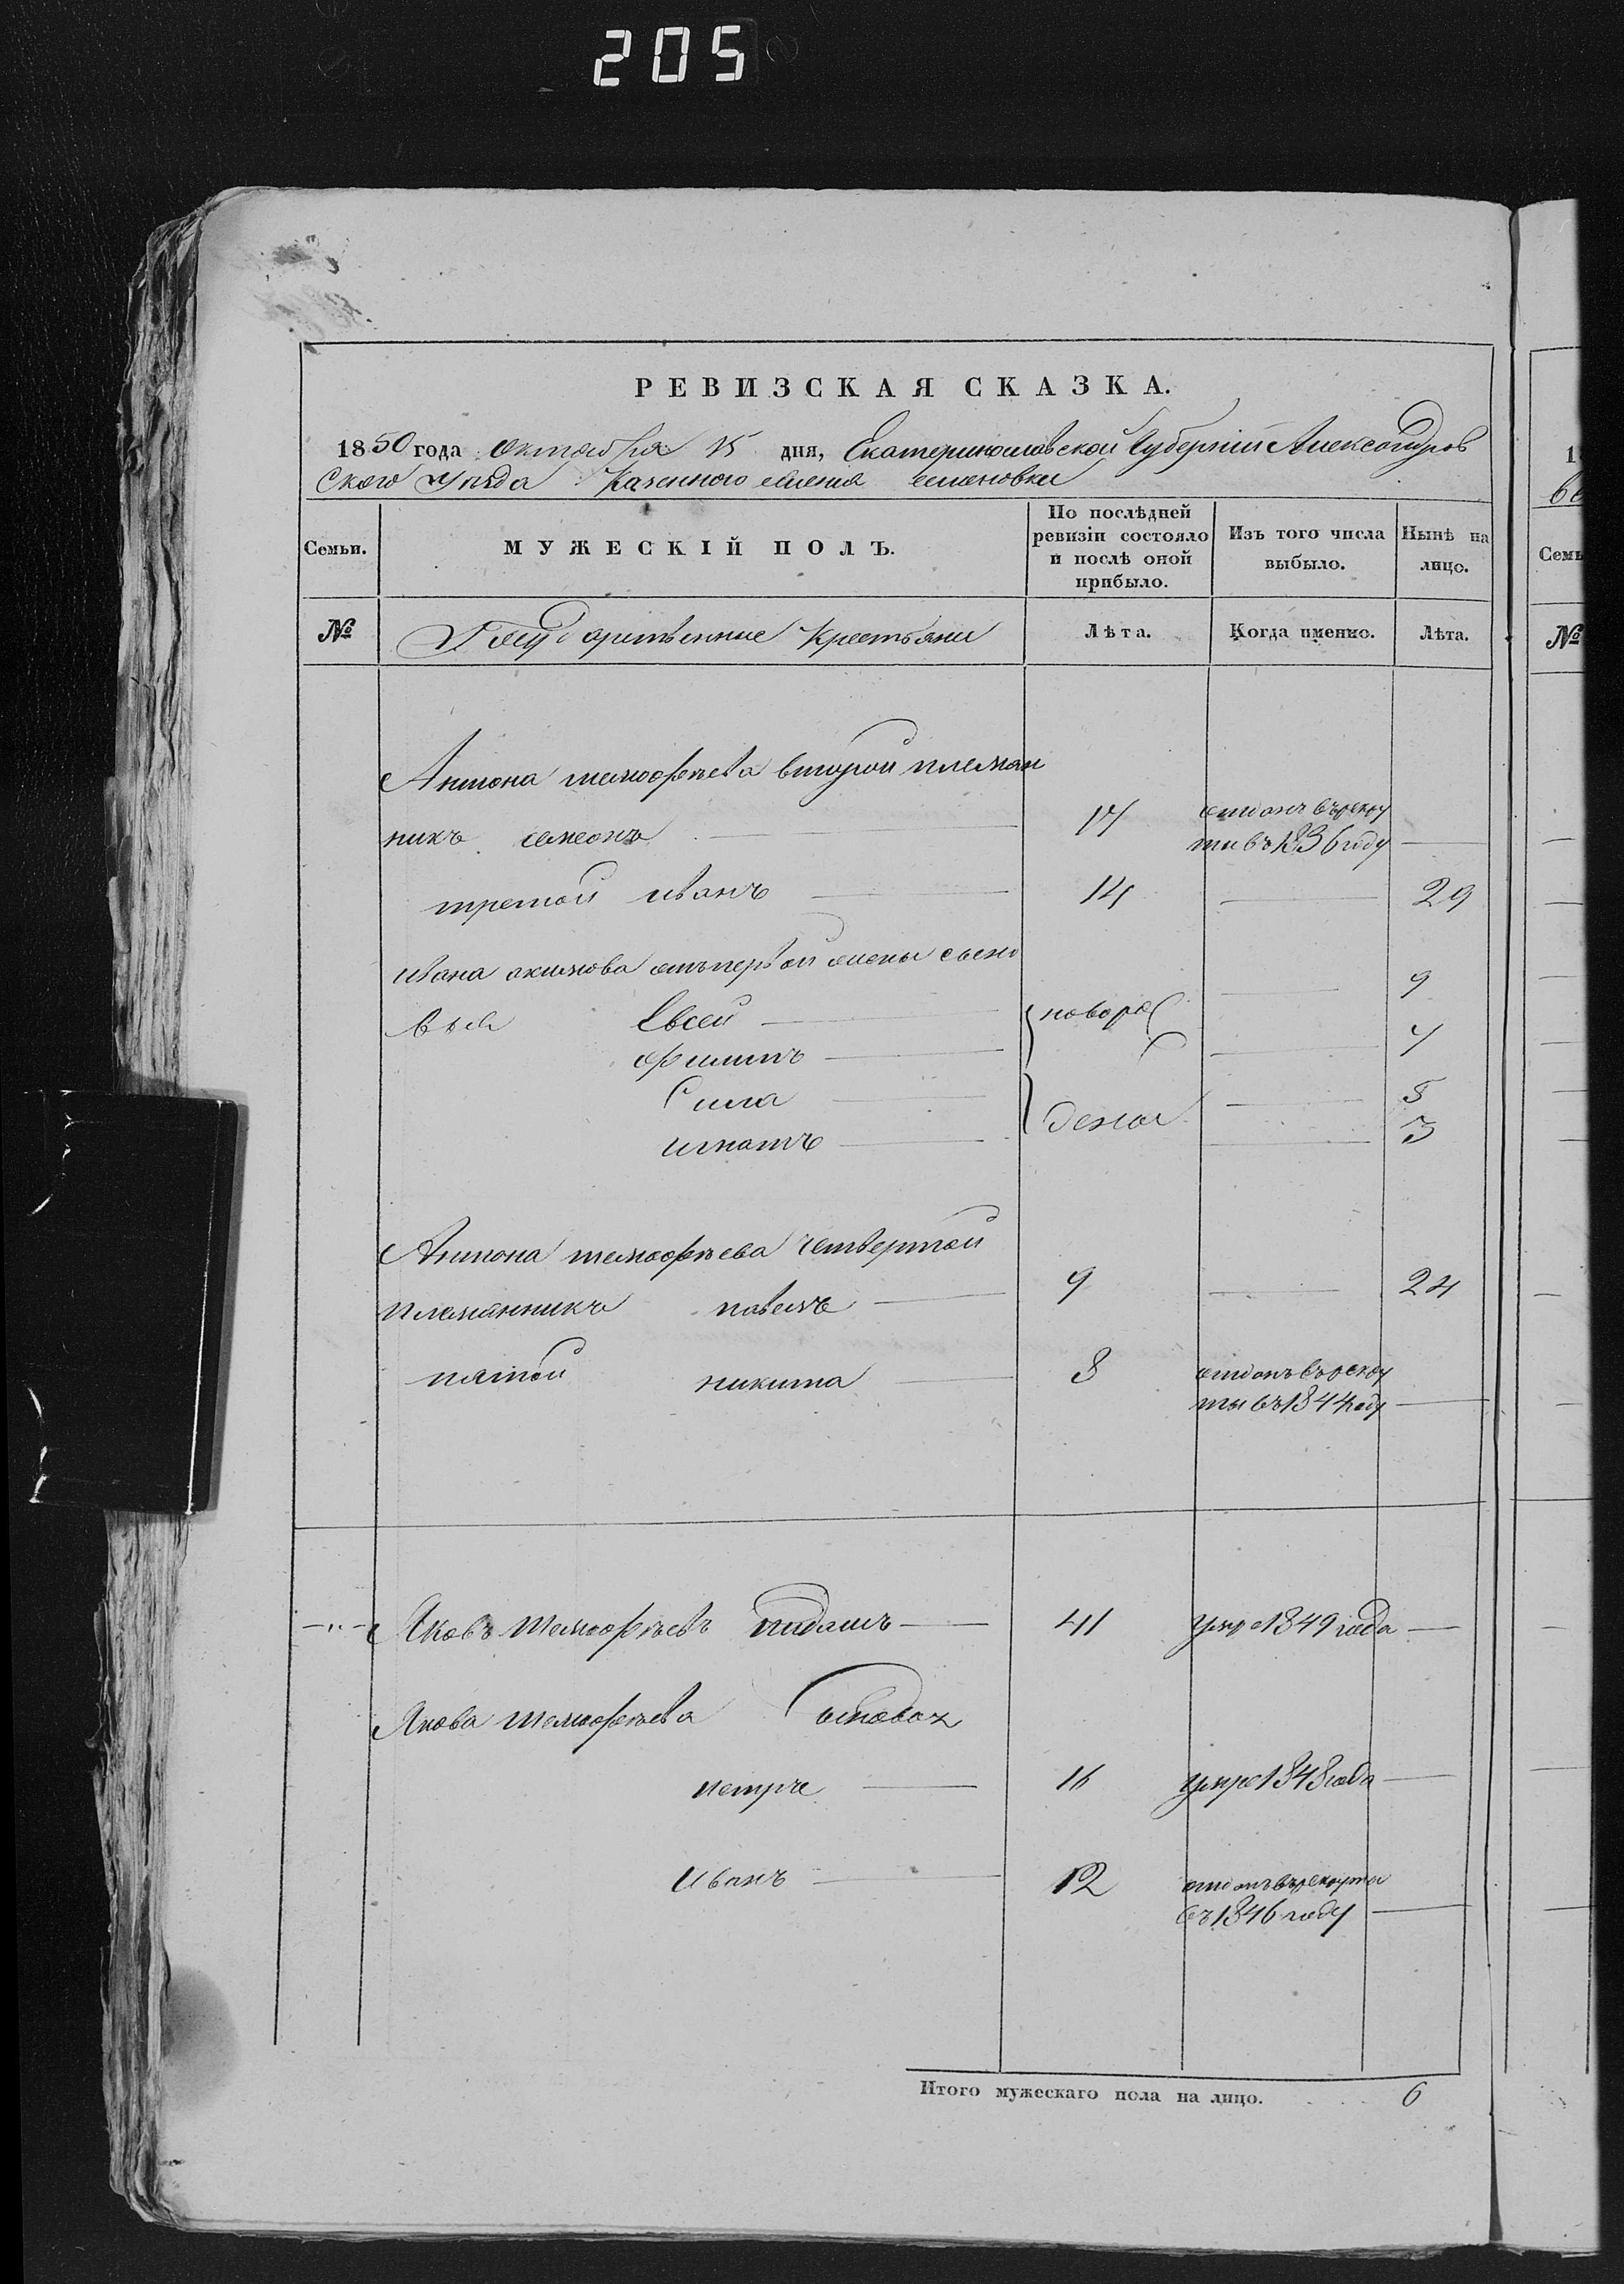 205
РЕВИЗСКАЯ СКАЗКА.
1850 года октября 15 дня, Екатеринославской Губернии Александров
ского Уезда Казенного селения семеновки
Семьи. МУЖЕСКІЙ ПОЛЪ. По послѣдней ревизіи состояло и послѣ оной прибыло. Изъ того числа выбыло. Нынѣ на лицо.
№ Государственные Крестьяни Лѣта. Когда именно. Лѣта.
Антона тимофѣева второй племян
никъ семенъ 17 отданъ върекру
ти въ 1836 году
третой иванъ 14 29
ивана акимова отъпервой жены сыно
вья Евсей новоро 9
филипъ 7
Сила 5
игнатъ 3
Антона тимофѣева четвертой
племянникъ павелъ 9 24
пятой никита 8 отданъ върекру
ты въ 1844 году
Яковъ тимофѣевъ 41 умре 1849 года
Якова тимофѣева
петръ 16 умре 1848 года
иванъ 12 отданъ върекруты
въ 1846 году
Итого мужескаго пола на лицо. 6
1
Семь
№